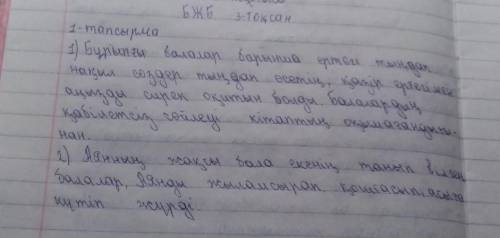 БЖБ 3-Тоқсан
1-тапсырма
1) Бұрынғы балалар барынша ертегі тыңдап
нақыл сөздер тыңдап өсетін, қазір ертегімен
аңызды сирек оқитын болды балалардың
қабілетсіз сөйлеу кітаптың оқымағандығы-
нан.
2) Аянның жақсы бала екенің танып білген
балалар, Аянды жыламсырап қоштасып
күтіп жүрді.